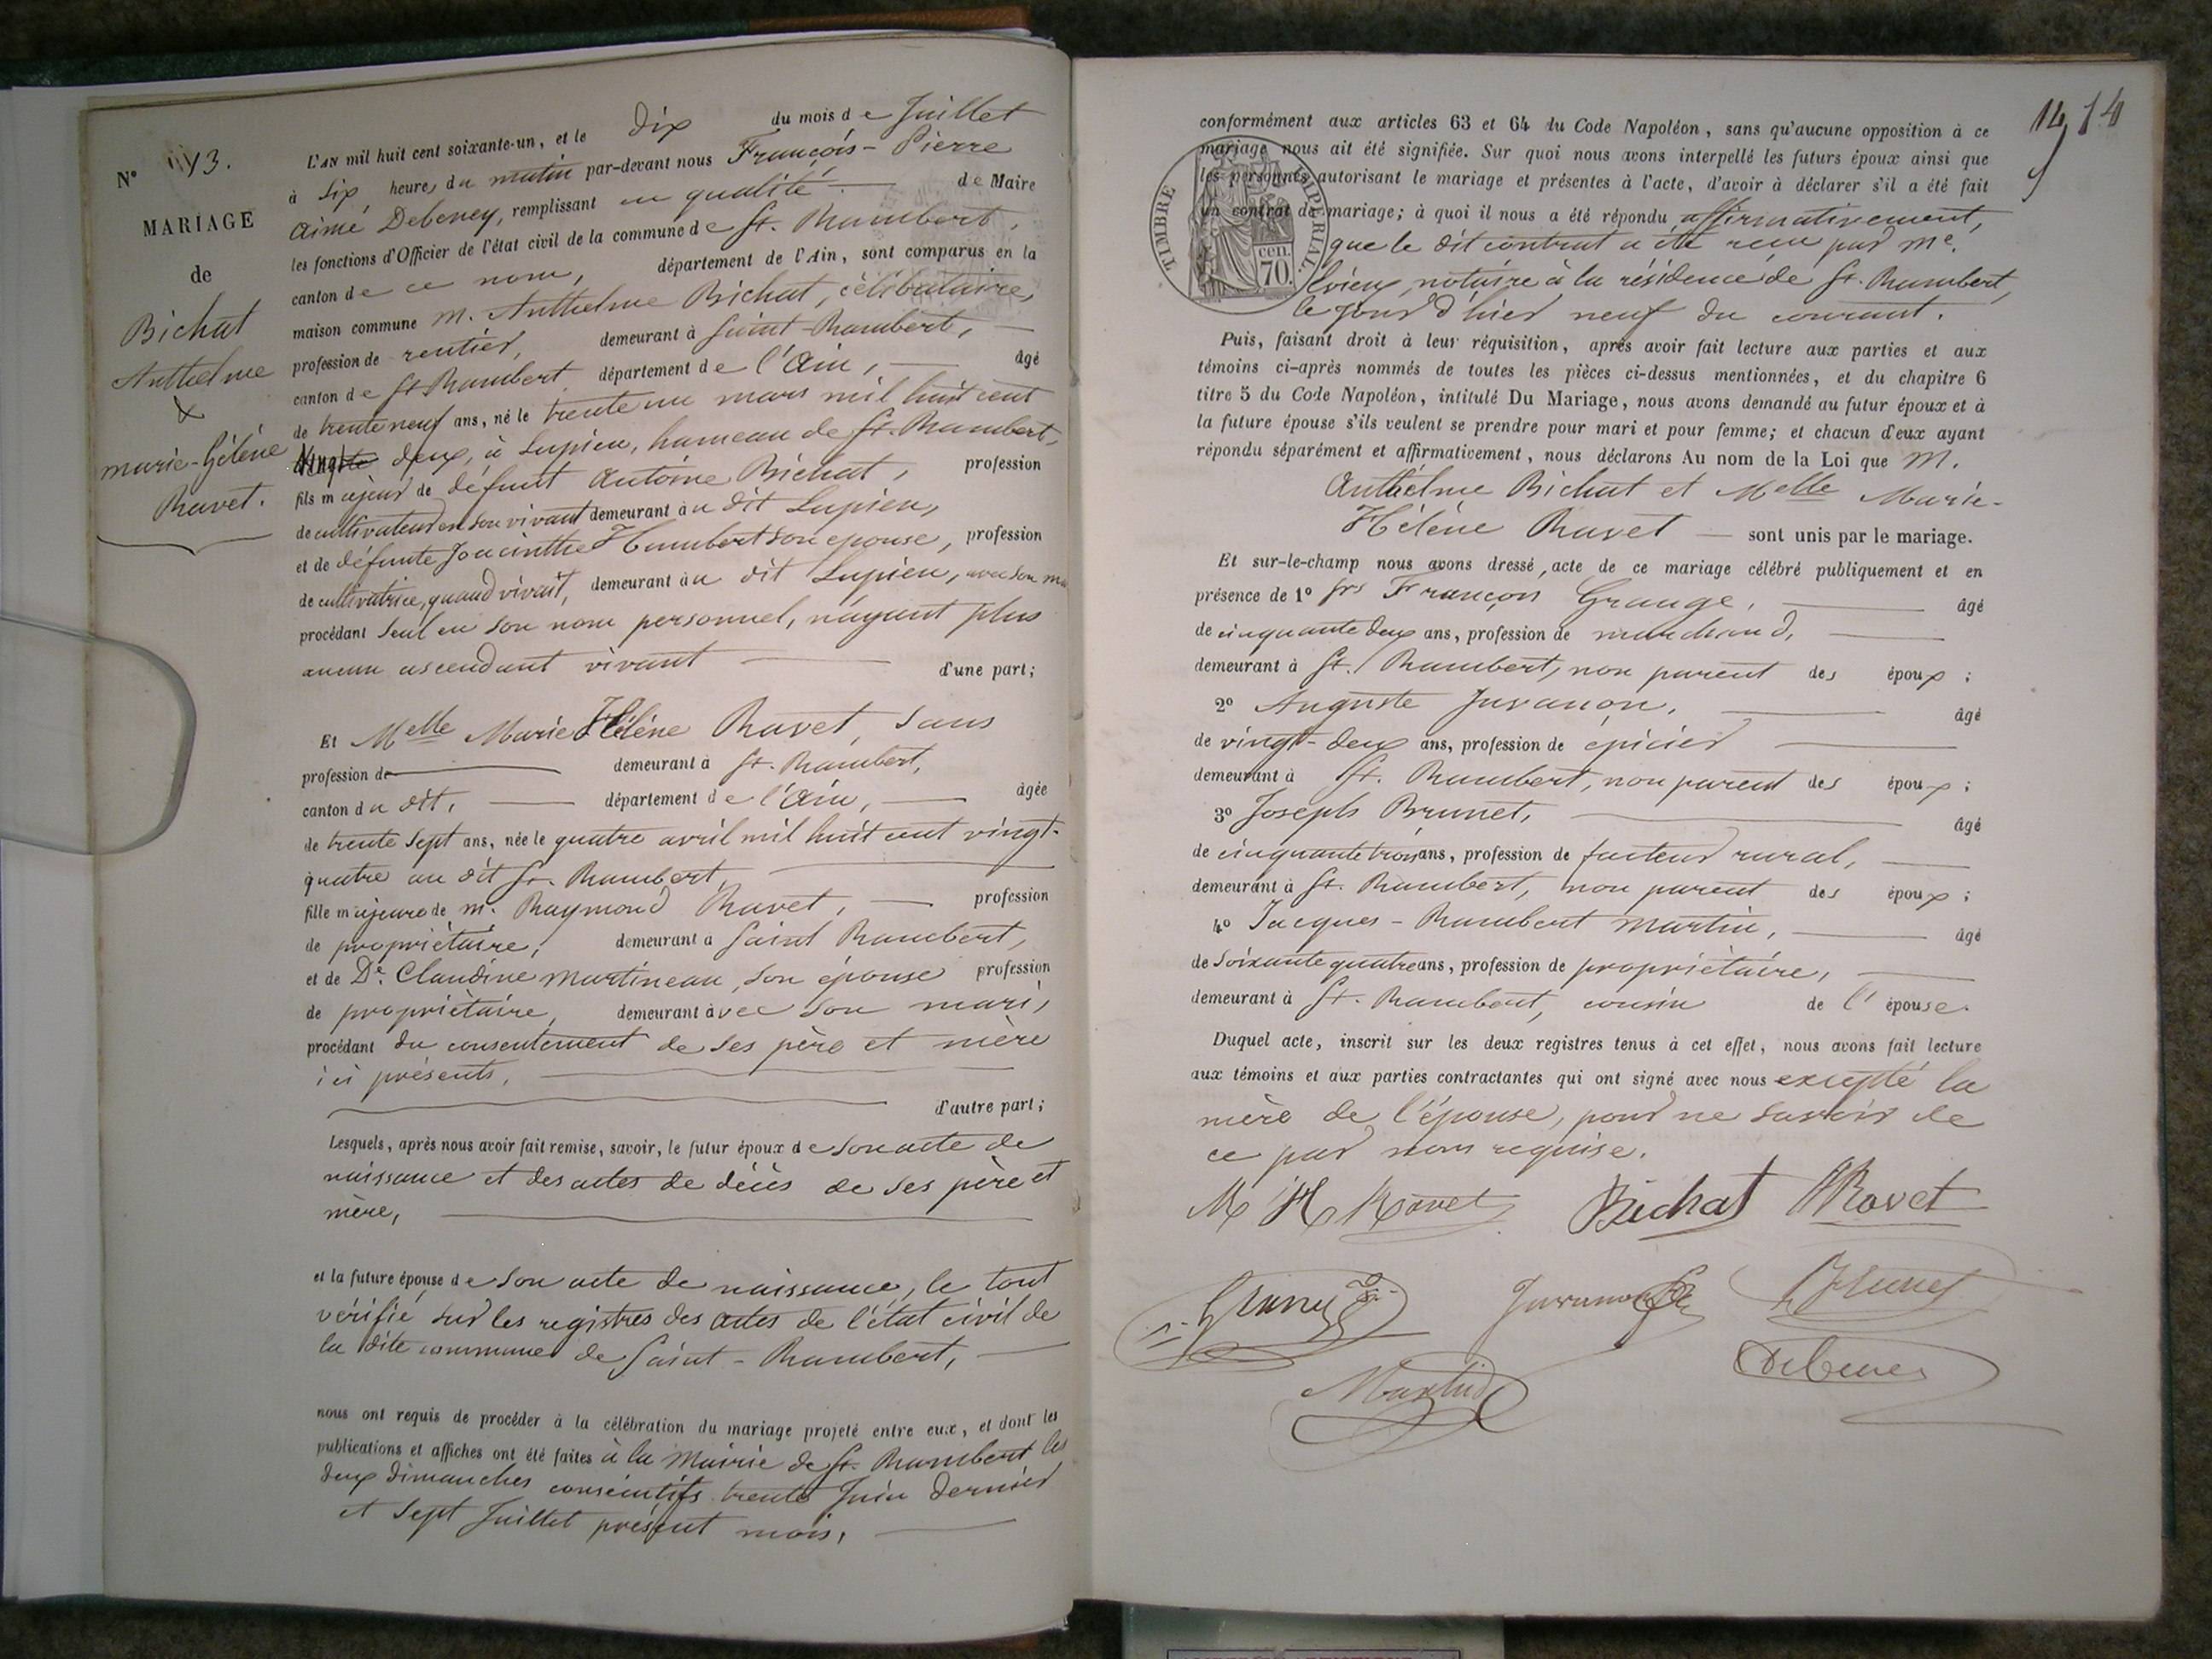 N° 13.
MARIAGE
de
Bichat
Anthelme
&
Marie-Hélène
Ravet.
L'AN mil huit cent soixante-un, et le dix du mois de Juillet
à six heures du matin par-devant nous François-Pierre
Aimé Debeney, remplissant en qualité de Maire
les fonctions d'Officier de l'état civil de la commune de St. Rambert,
canton de ce nom, département de l'Ain, sont comparus en la
maison commune M. Anthelme Bichat, célibataire,
profession de rentier, demeurant à Saint-Rambert,
canton de St Rambert département de l'Ain, âgé
de trente neuf ans, né le trente un mars mil huit cent
vingt deux, à Lupieu, hameau de St. Rambert,
fils majeur de défunt Antoine Bichat, profession
de cultivateur en son vivant demeurant au dit Lupieu,
et de défunte Joacinthe Humbert son épouse, profession
de cultivatrice, quand vivait, demeurant au dit Lupieu, avec son
procédant seul en son nom personnel, n'ayant plus
aucun ascendant vivant d'une part;
Et Melle Marie Hélène Ravet, sans
profession de demeurant à St. Rambert,
canton du dit, département de l'Ain, âgée
de trente sept ans, née le quatre avril mil huit cent vingt-
quatre au dit St. Rambert,
fille majeure de M. Raymond Ravet, profession
de propriétaire, demeurant à Saint Rambert,
et de De. Claudine Martineau, son épouse profession
de propriétaire, demeurant avec son mari,
procédant du consentement de ses père et mère
ici présents,
d'autre part;
Lesquels, après nous avoir fait remise, savoir, le futur époux de son acte de
naissance et des actes de décès de ses père et
mère,
et la future épouse de son acte de naissance, le tout
vérifié sur les registres des actes de l'état civil de
la dite commune de Saint-Rambert,
nous ont requis de procéder à la célébration du mariage projeté entre eux, et dont les
publications et affiches ont été faites à la Mairie de St. Rambert les
deux dimanches consécutifs trente Juin dernier
et sept Juillet présent mois,
14 14
conformément aux articles 63 et 64 du Code Napoléon, sans qu'aucune opposition à ce
mariage nous ait été signifiée. Sur quoi nous avons interpellé les futurs époux ainsi que
les personnes autorisant le mariage et présentes à l'acte, d'avoir à déclarer s'il a été fait
un contrat de mariage; à quoi il nous a été répondu affirmativement,
que le dit contrat a été reçu par Me.
notaire à la résidence de St. Rambert,
le jour d'hier neuf du courant.
TIMBRE IMPERIAL.
70. cen.
Puis, faisant droit à leur réquisition, après avoir fait lecture aux parties et aux
témoins ci-après nommés de toutes les pièces ci-dessus mentionnées, et du chapitre 6
titre 5 du Code Napoléon, intitulé Du Mariage, nous avons demandé au futur époux et à
la future épouse s'ils veulent se prendre pour mari et pour femme; et chacun d'eux ayant
répondu séparément et affirmativement, nous déclarons Au nom de la Loi que M.
Anthelme Bichat et Melle Marie-
Hélène Ravet sont unis par le mariage.
Et sur-le-champ nous avons dressé, acte de ce mariage célébré publiquement et en
présence de 1° Jrs François Grange, âgé
de cinquante deux ans, profession de marchand,
demeurant à St. Rambert, non parent des époux;
2° Auguste Juvanon, âgé
de vingt-deux ans, profession de épicier
demeurant à St. Rambert, non parent des époux;
3° Joseph Brunet, âgé
de cinquante trois ans, profession de facteur rural,
demeurant à St. Rambert, non parent des époux;
4° Jacques-Rambert Martin, âgé
de soixante quatre ans, profession de propriétaire,
demeurant à St. Rambert, cousin de l'épouse.
Duquel acte, inscrit sur les deux registres tenus à cet effet, nous avons fait lecture
aux témoins et aux parties contractantes qui ont signé avec nous excepté la
mère de l'épouse, pour ne savoir de
ce par nous requise.
M H Ravet Bichat Ravet
Juvanon Brunet
Martin Debeney